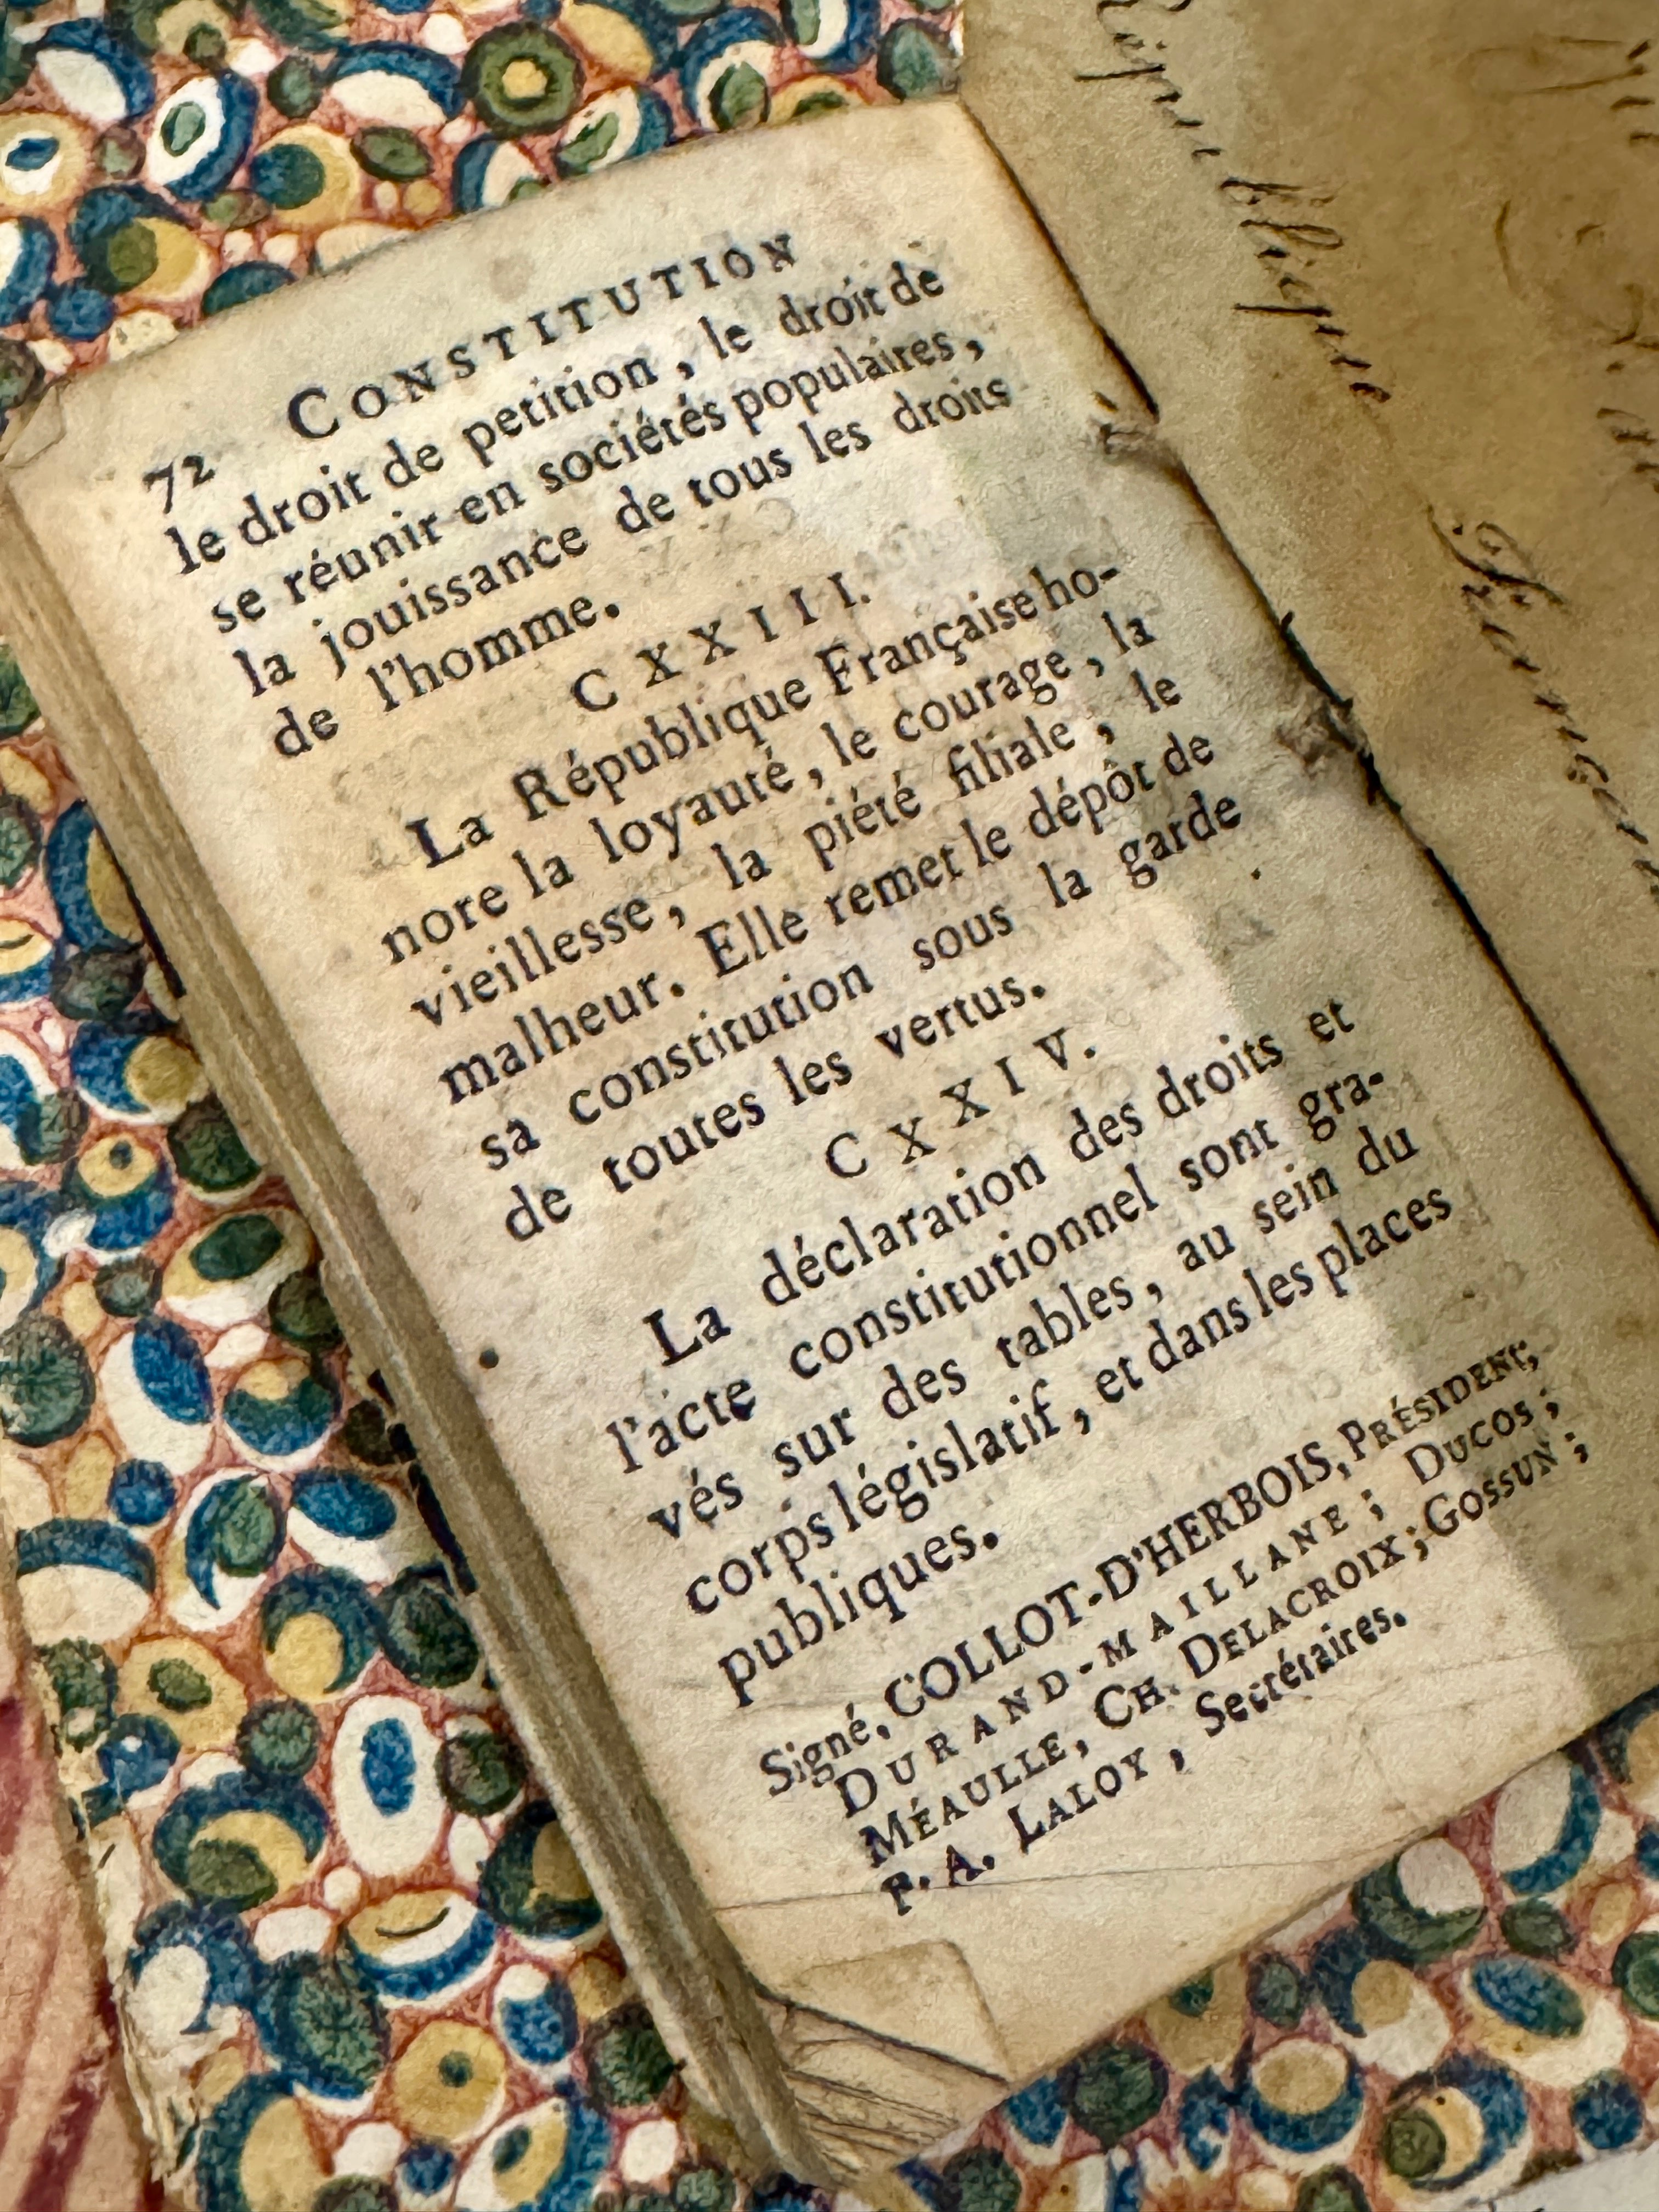 72 CONSTITUTION
le droit de petition, le droit de
se réunir en sociétés populaires,
la jouissance de tous les droits
de l'homme.
CXXIII.
La République Française ho-
nore la loyauté, le courage, la
vieillesse, la piété filiale, le
malheur. Elle remet le dépôt de
sa constitution sous la garde
de toutes les vertus.
CXXIV.
La déclaration des droits et
l'acte constitutionnel sont gra-
vés sur des tables, au sein du
corps législatif, et dans les places
publiques.
Signé, COLLOT-D'HERBOIS, PRÉSIDENT;
DURAND-MAILLANE; DUCOS;
MÉAULLE, CH. DELACROIX; GOSSUIN;
P. A. LALOY, Secrétaires.
République